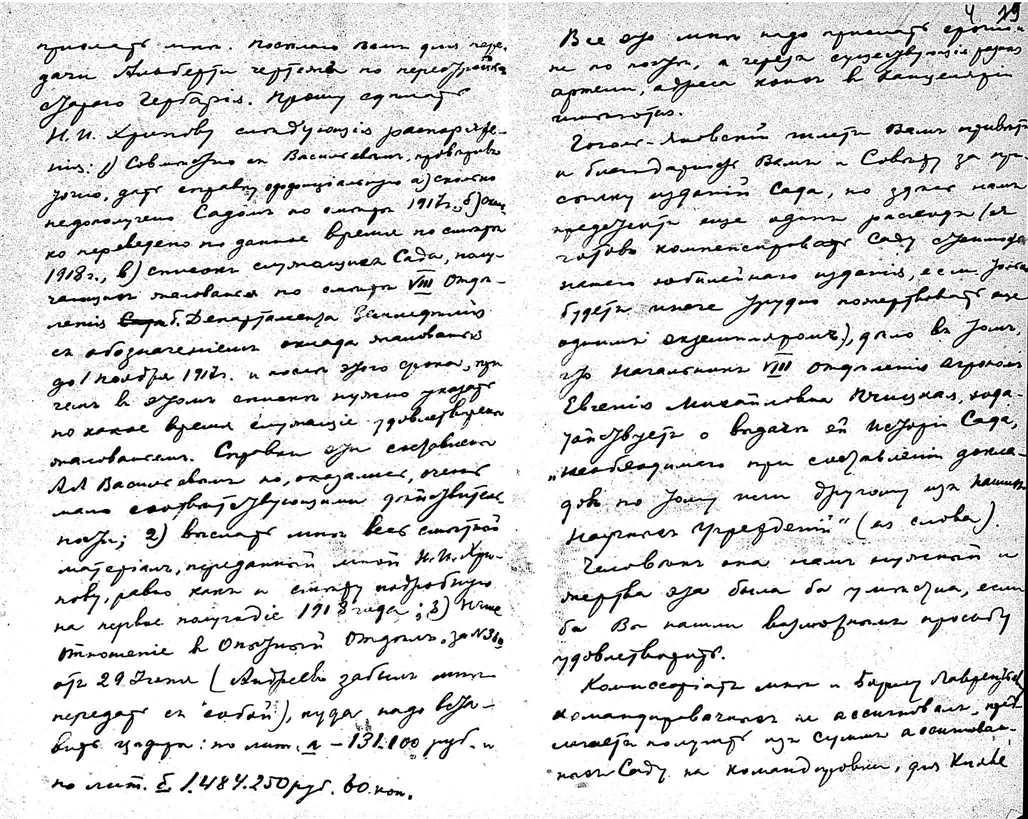 прислать мнѣ. Посылаю Вамъ для пере-
дачи Альберти чертежъ по переустройству
Стараго Гербарія. Прошу сдѣлать
Н. И. Хрипову слѣдующія распоряже-
нія: 1) Совмѣстно съ Васильевымъ, провѣривъ
точно, дать справку оффиціальную а) сколько
недополучено Садомъ по смѣтѣ 1917г., б) сколь-
ко переведено по данное время по смѣтѣ
1918 г., в) списокъ служащихъ Сада, полу-
чающихъ жалованье по смѣтѣ VIII Отдѣ-
ленія б. Департамента Земледѣлія
съ обозначеніемъ оклада жалованья
до 1 ноября 1917г. и послѣ этого срока, при
чемъ в этомъ спискѣ нужно указать
по какое время служащіе удовлетворены
жалованьем. Справки эти составлены
Васильевымъ но, оказалось, очень
мало соотвѣтствующими дѣйствитель-
ности; 2) выслать мнѣ весь смѣтный
матеріалъ, переданный мной Н. И. Хри-
пову, равно какъ и смѣту подробную
на первое полугодіе 1918 года; 3)
отношеніе в Опытный Отдѣлъ за №
отъ 29 Іюня (Андреевъ забылъ мнѣ
передать съ собой), куда надо вста-
вить цифры: по лит. а – 131.100 руб. и
по лит. б 1.484.250 руб. 60 коп.
4 19
Все это мнѣ надо прислать срочно и
не по почтѣ, а черезъ существующія разныя
артели, адреса коихъ в Канцеляріи
имѣются.
Гоголь-Яновскій шлетъ Вамъ привѣтъ
и благодаритъ Васъ и Совѣтъ за при-
сылку изданій Сада, но здѣсь намъ
предстоитъ еще одинъ расходъ (я
готовъ компенсировать Саду стоимость
нашего юбилейнаго изданія, если Совѣту
будетъ иначе трудно пожертвовать еще
однимъ экземпляромъ), дѣло въ томъ,
что Начальникъ VIII Отдѣленія агрономъ
Евгенія Михайловна Пчицкая, хода-
тайствуетъ о выдачѣ ей Исторіи Сада,
„необходимаго при составленіи докла-
довъ по тому или другому изъ нашихъ
Научныхъ Учрежденій" (ея слова).
Человѣкъ она намъ нужный и
жертва эта была бы умѣстна, если
бы Вы нашли возможнымъ просьбу
удовлетворить.
Комиссаріатъ мнѣ и Борису Лаврентьев.
командировочныхъ не ассигновалъ, пред-
лагаетъ получить изъ суммъ ассигнован-
ныхъ Саду на командировки, для